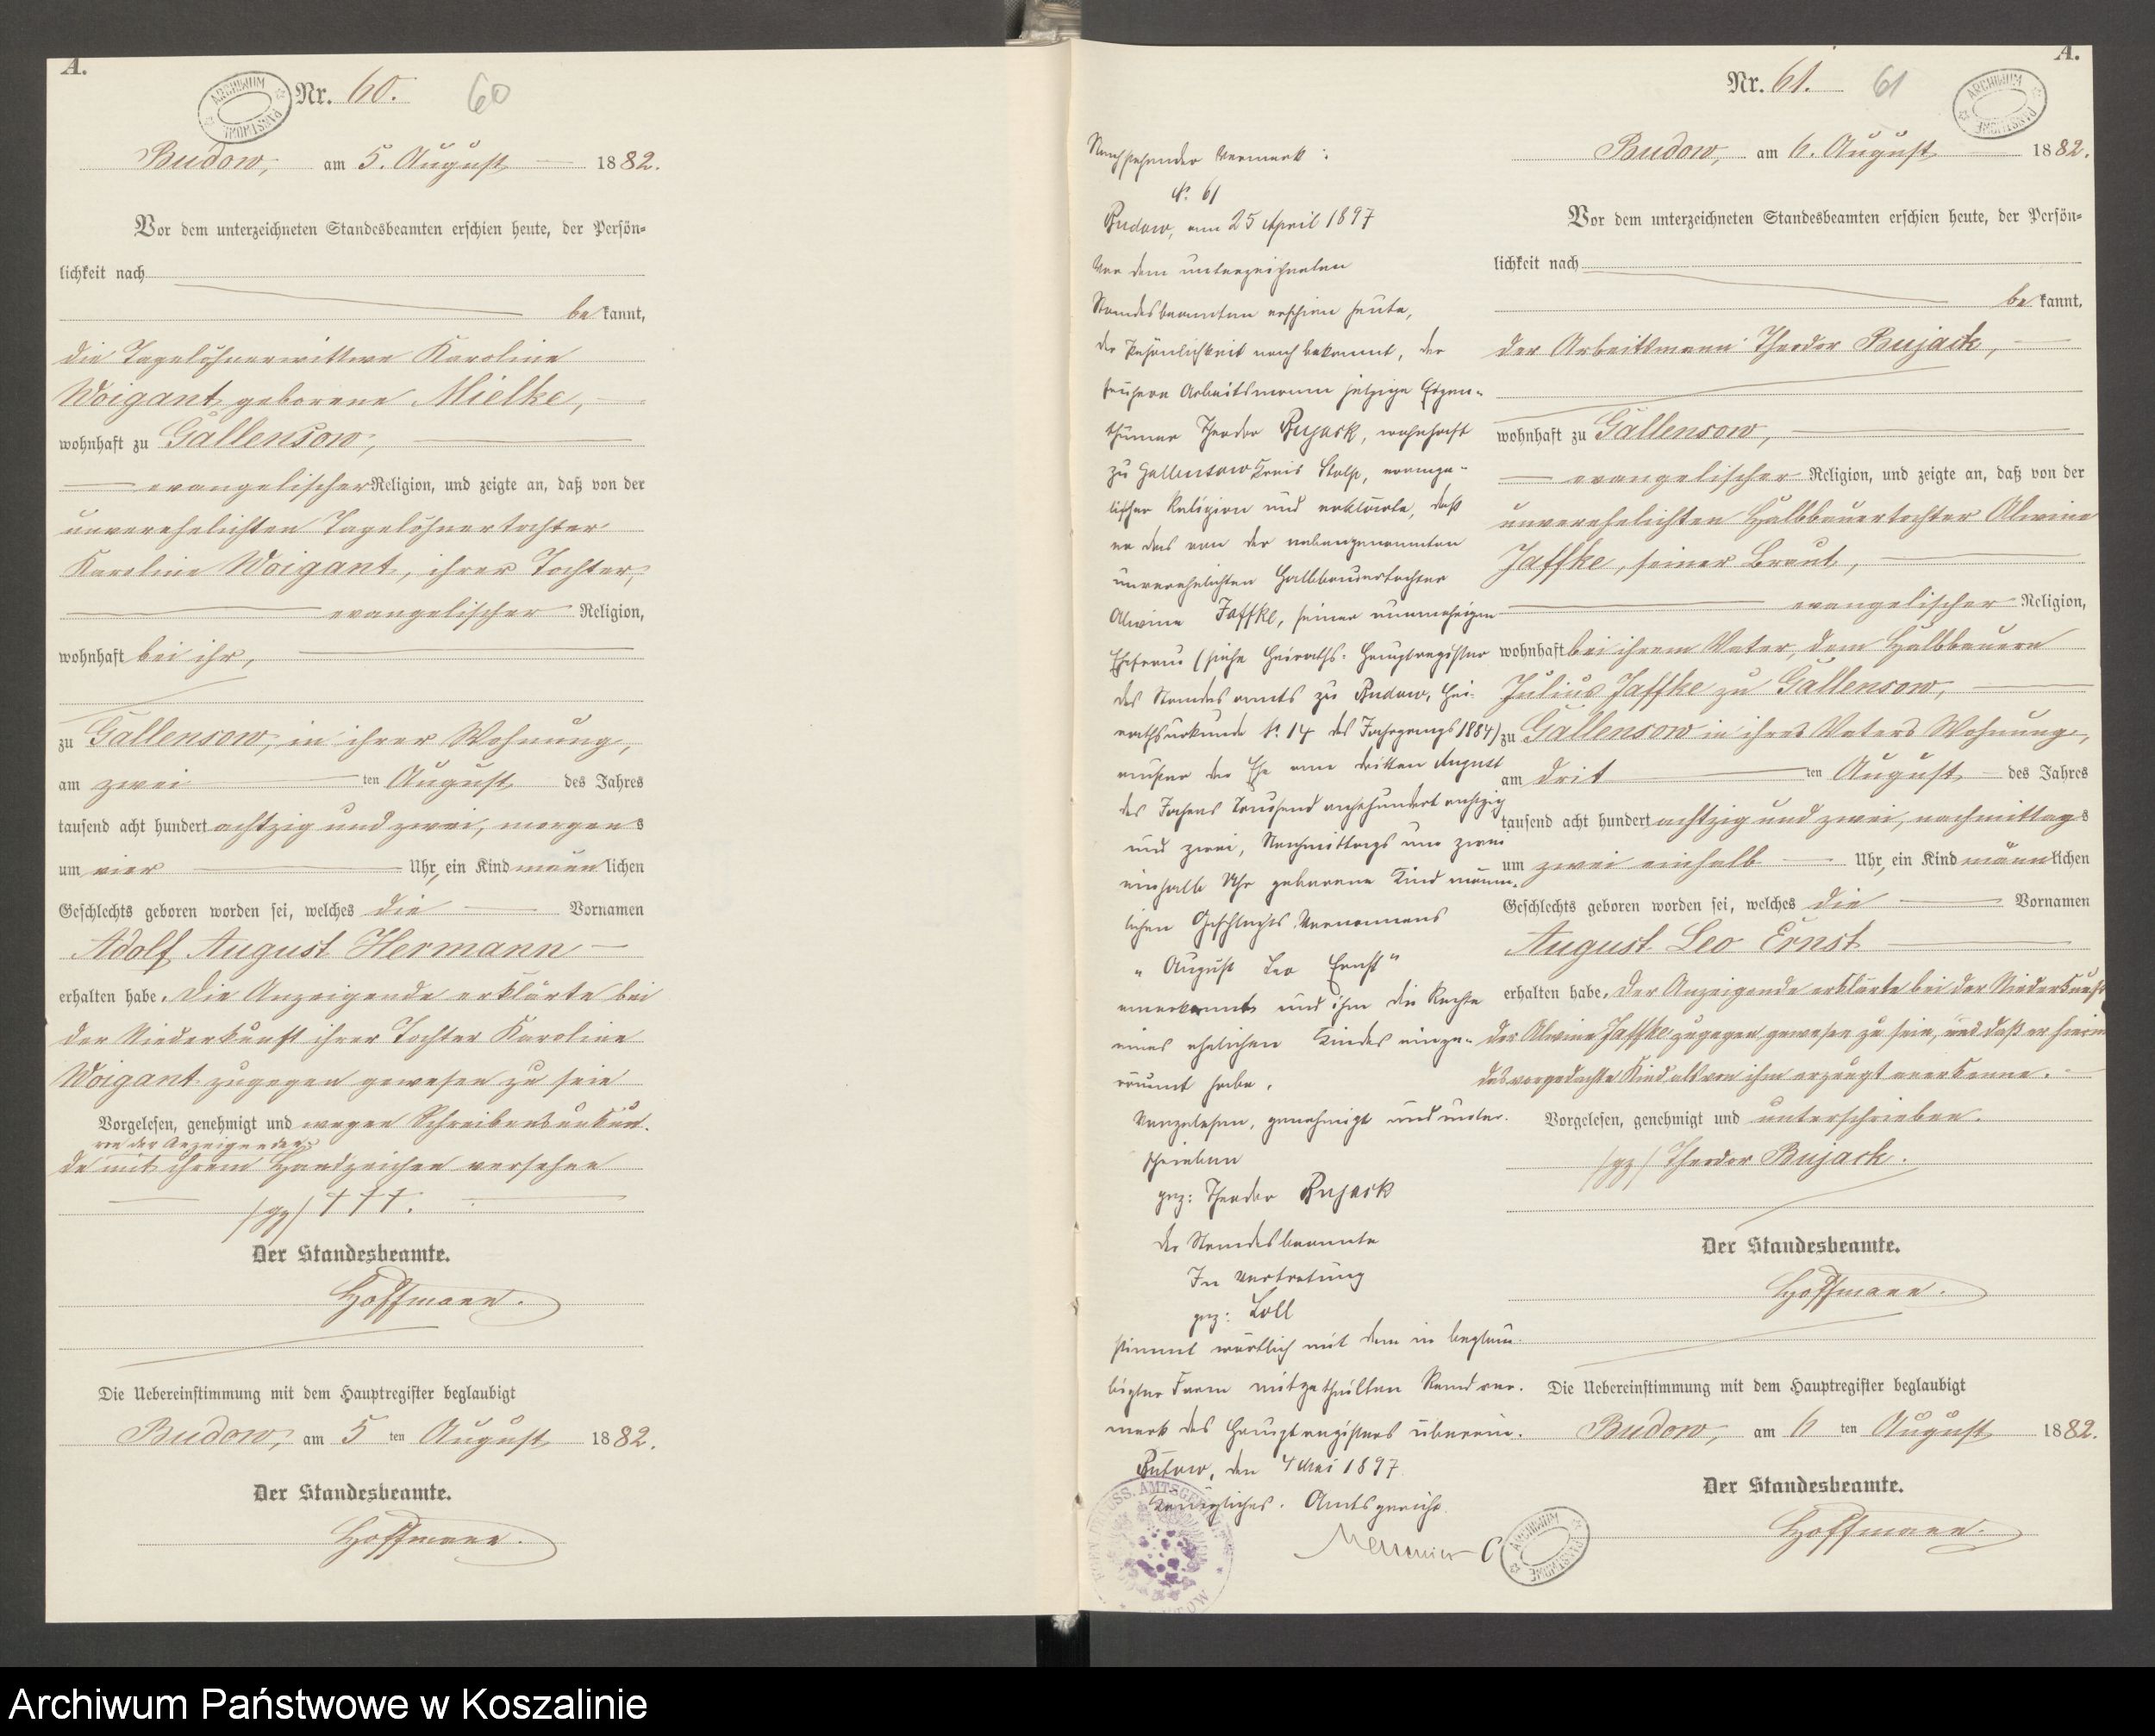 A.
ARCHIWUM PAŃSTWOWE
Nr. 60. 60
Budow, am 5. August 1882.
Vor dem unterzeichneten Standesbeamten erschien heute, der Persön-
lichkeit nach
be kannt,
die Tagelöhnerwittwe Karoline
Woigant geborene Mielke,
wohnhaft zu Gallensow,
evangelischer Religion, und zeigte an, daß von der
unverehelichten Tagelöhnertochter
Karoline Woigant, ihrer Tochter,
evangelischer Religion,
wohnhaft bei ihr,
zu Gallensow, in ihrer Wohnung,
am zwei ten August des Jahres
tausend acht hundert achtzig und zwei, morgens
um vier Uhr, ein Kind männlichen
Geschlechts geboren worden sei, welches die Vornamen
Adolf August Hermann
erhalten habe. Die Anzeigende erklärte bei
der Niederkunft ihrer Tochter Karoline
Woigant zugegen gewesen zu sein
Vorgelesen, genehmigt und wegen Schreibensunkun-
von der Anzeigenden
de mit ihrem Handzeichen versehen
/gz/ †††.
Der Standesbeamte.
Hoffmann.
Die Uebereinstimmung mit dem Hauptregister beglaubigt
Budow, am 5 ten August 1882.
Der Standesbeamte.
Hoffmann.
Nachstehender Vermerk:
N. 61
Budow, am 25 April 1897
Vor dem unterzeichneten
Standesbeamten erschien heute,
der Persönlichkeit nach bekannt, der
frühere Arbeitsmann jetzige Eigen-
thümer Theodor Bujack, wohnhaft
zu Gallensow Kreis Stolp, evange-
lischer Religion und erklärte, daß
er das von der nebengenannten
unverehelichten Halbbauertochter
Alwine Jaffke, seiner nunmehrigen
Ehefrau (siehe Heiraths-Hauptregister
des Standesamts zu Budow, Hei-
rathsurkunde N. 14 des Jahrgangs 1884)
außer der Ehe am dritten August
des Jahres Tausend achthundert achtzig
und zwei, Nachmittags um zwei
einhalb Uhr geborene Kind männ-
lichen Geschlechts Vornamens
"August Leo Ernst"
anerkannt und ihm die Rechte
eines ehelichen Kindes einge-
räumt habe.
Vorgelesen, genehmigt und unter-
schrieben
gez: Theodor Bujack
Der Standesbeamte
In Vertretung
gez: Loll
stimmt wörtlich mit dem in beglau-
bigter Form mitgetheilten Randver-
merk des Hauptregisters überein.
Bütow, den 4 Mai 1897.
Königliches. Amtsgericht.
ARCHIWUM PAŃSTWOWE
A.
Nr. 61. 61
ARCHIWUM PAŃSTWOWE
Budow, am 6. August 1882.
Vor dem unterzeichneten Standesbeamten erschien heute, der Persön-
lichkeit nach
be kannt,
der Arbeitsmann Theodor Bujack,
wohnhaft zu Gallensow,
evangelischer Religion, und zeigte an, daß von der
unverehelichten Halbbauertochter Alwine
Jaffke, seiner Braut,
evangelischer Religion,
wohnhaft bei ihrem Vater, dem Halbbauern
Julius Jaffke zu Gallensow,
zu Gallensow in ihres Vaters Wohnung,
am drit ten August des Jahres
tausend acht hundert achtzig und zwei, nachmittags
um zwei einhalb Uhr, ein Kind männlichen
Geschlechts geboren worden sei, welches die Vornamen
August Leo Ernst
erhalten habe. Der Anzeigende erklärte bei der Niederkunft
der Alwine Jaffke zugegen gewesen zu sein, und daß er hierin
das vorgedachte Kind als von ihm erzeugt anerkenne.
Vorgelesen, genehmigt und unterschrieben.
/gz/ Theodor Bujack.
Der Standesbeamte.
Hoffmann.
Die Uebereinstimmung mit dem Hauptregister beglaubigt
Budow, am 6 ten August 1882.
Der Standesbeamte.
Hoffmann.
Archiwum Państwowe w Koszalinie